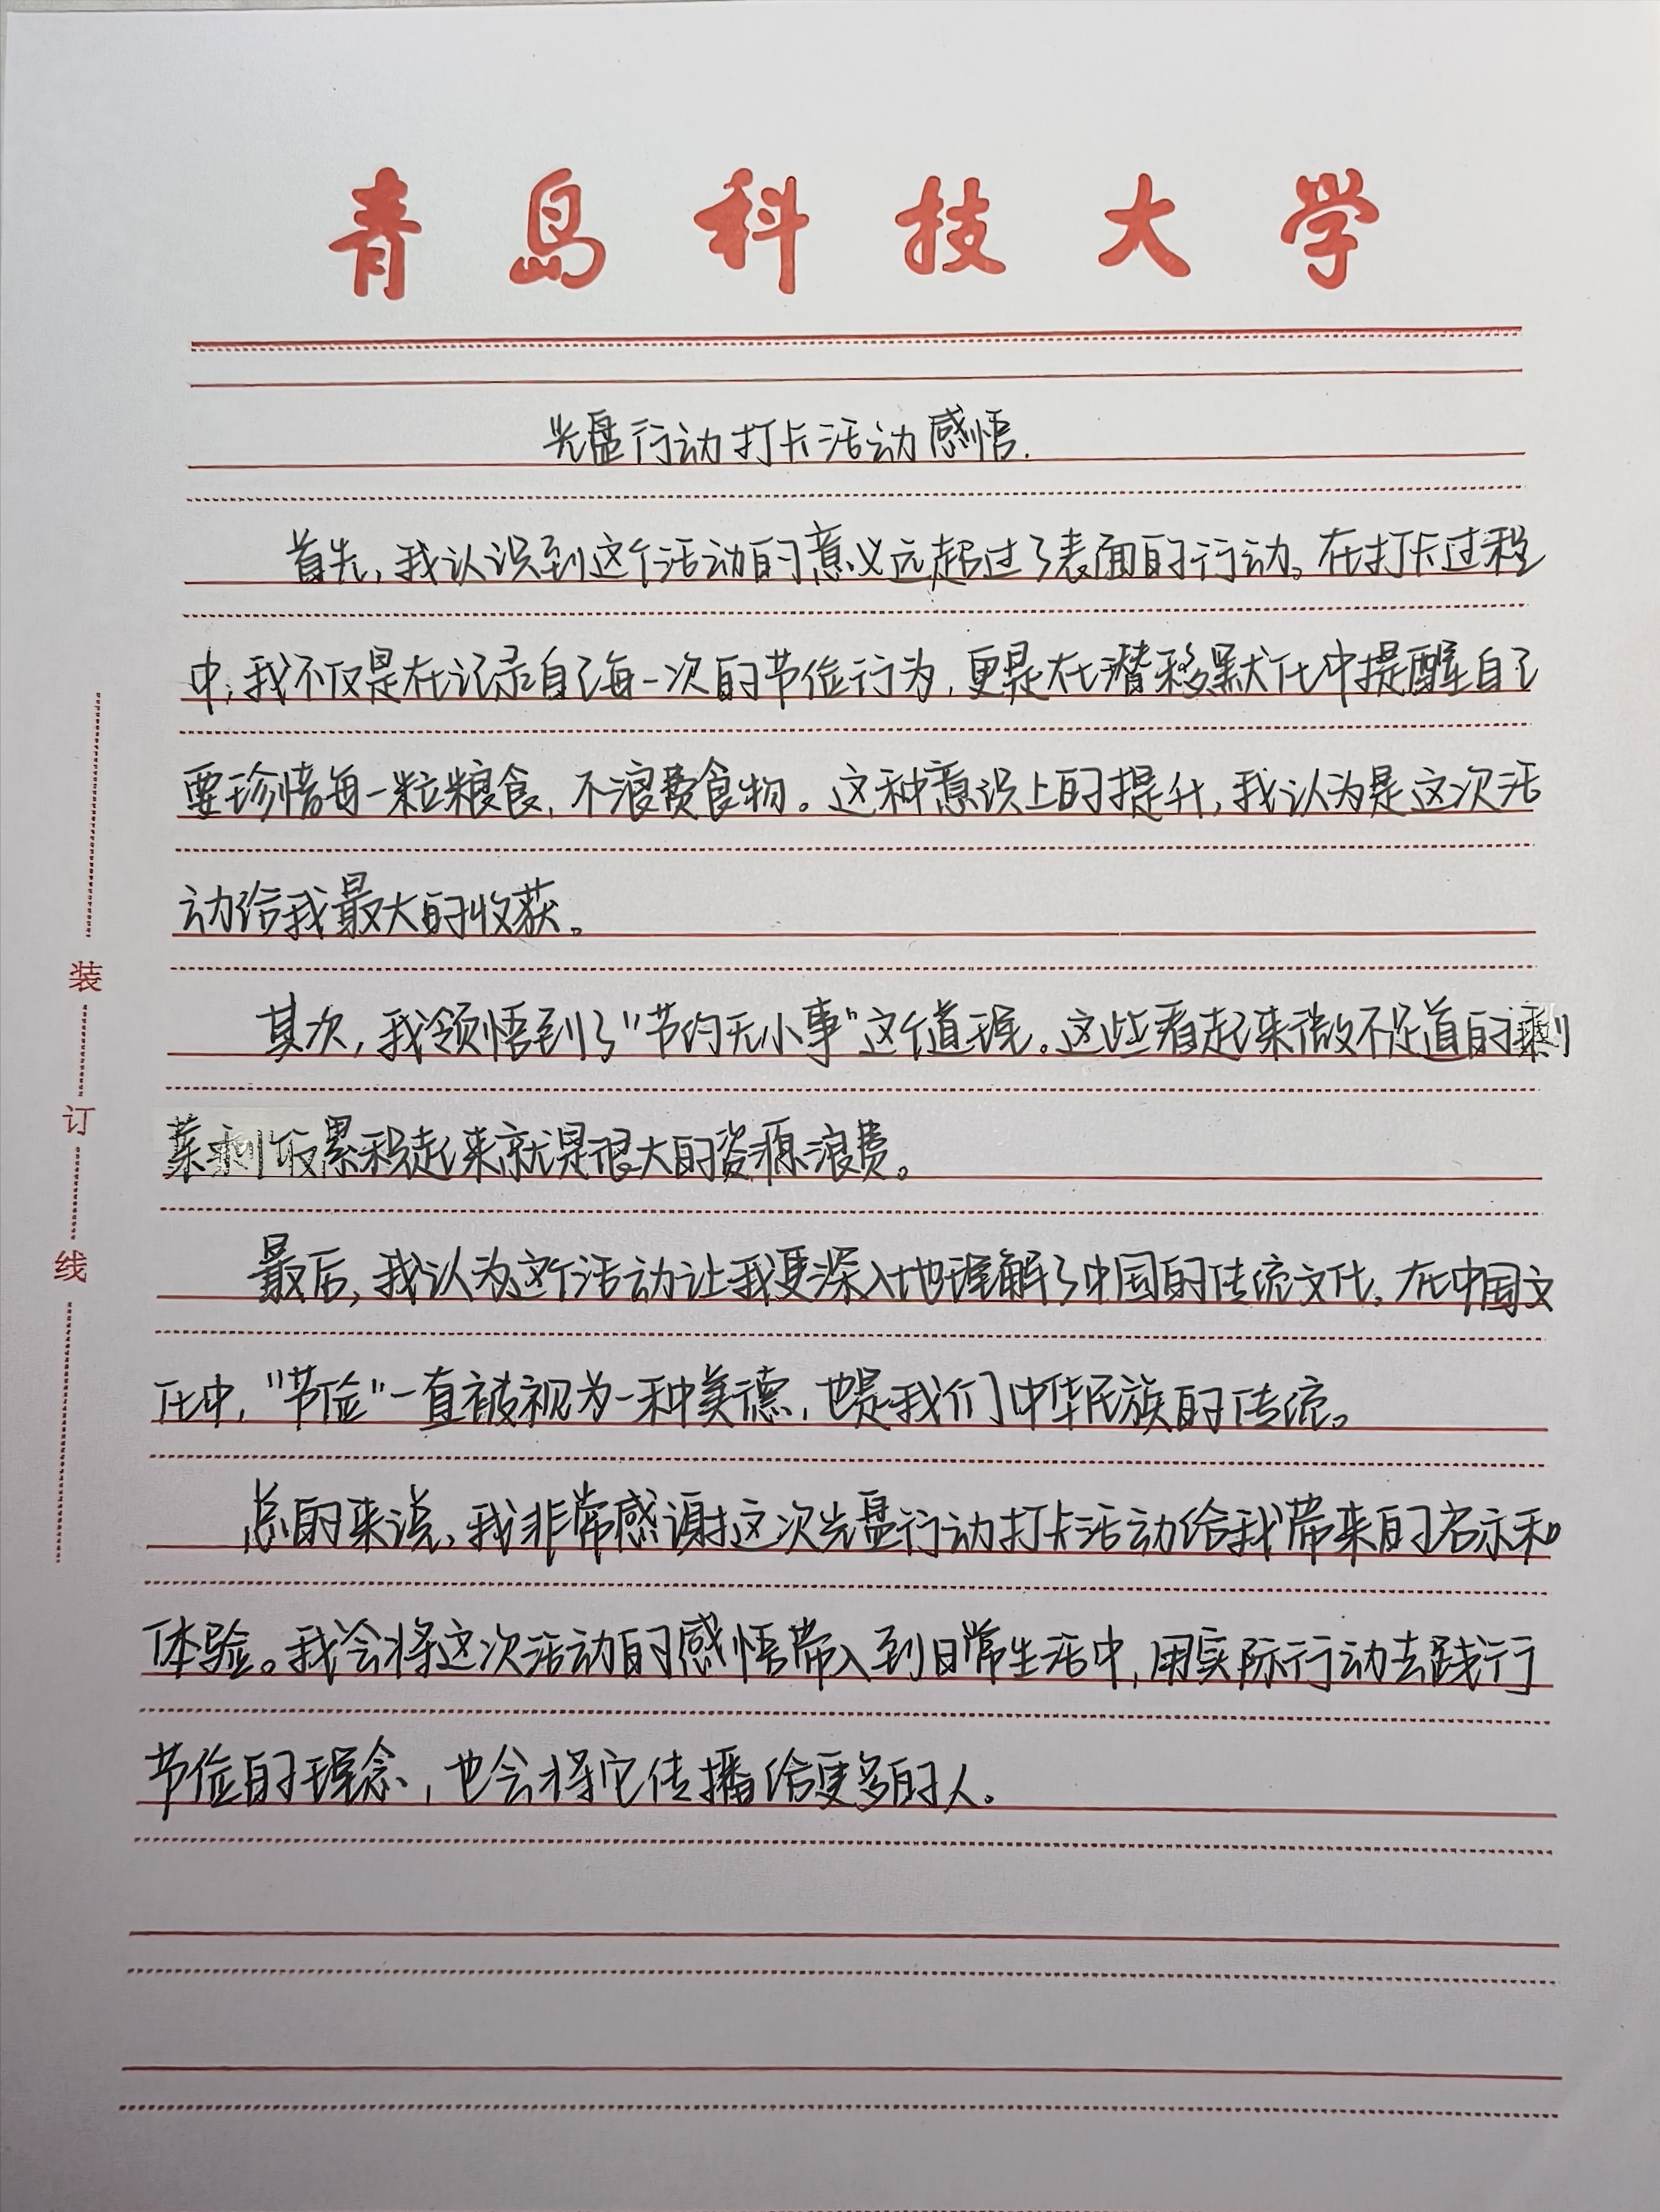 青岛科技大学
光盘行动打卡活动感悟.
首先,我认识到这个活动的意义远超过了表面的行动。在打卡过程
中,我不仅是在记录自己每一次的节俭行为,更是在潜移默化中提醒自己
要珍惜每一粒粮食,不浪费食物。这种意识上的提升,我认为是这次活
动给我最大的收获。
其次,我领悟到了"节约无小事"这个道理。这些看起来微不足道的剩
菜剩饭累积起来就是很大的资源浪费。
最后,我认为这个活动让我更深入地理解了中国的传统文化。在中国文
化中,"节俭"一直被视为一种美德,也是我们中华民族的传统。
总的来说,我非常感谢这次光盘行动打卡活动给我带来的启示和
体验。我会将这次活动的感悟带入到日常生活中,用实际行动去践行
节俭的理念,也会将它传播给更多的人。
装
订
线